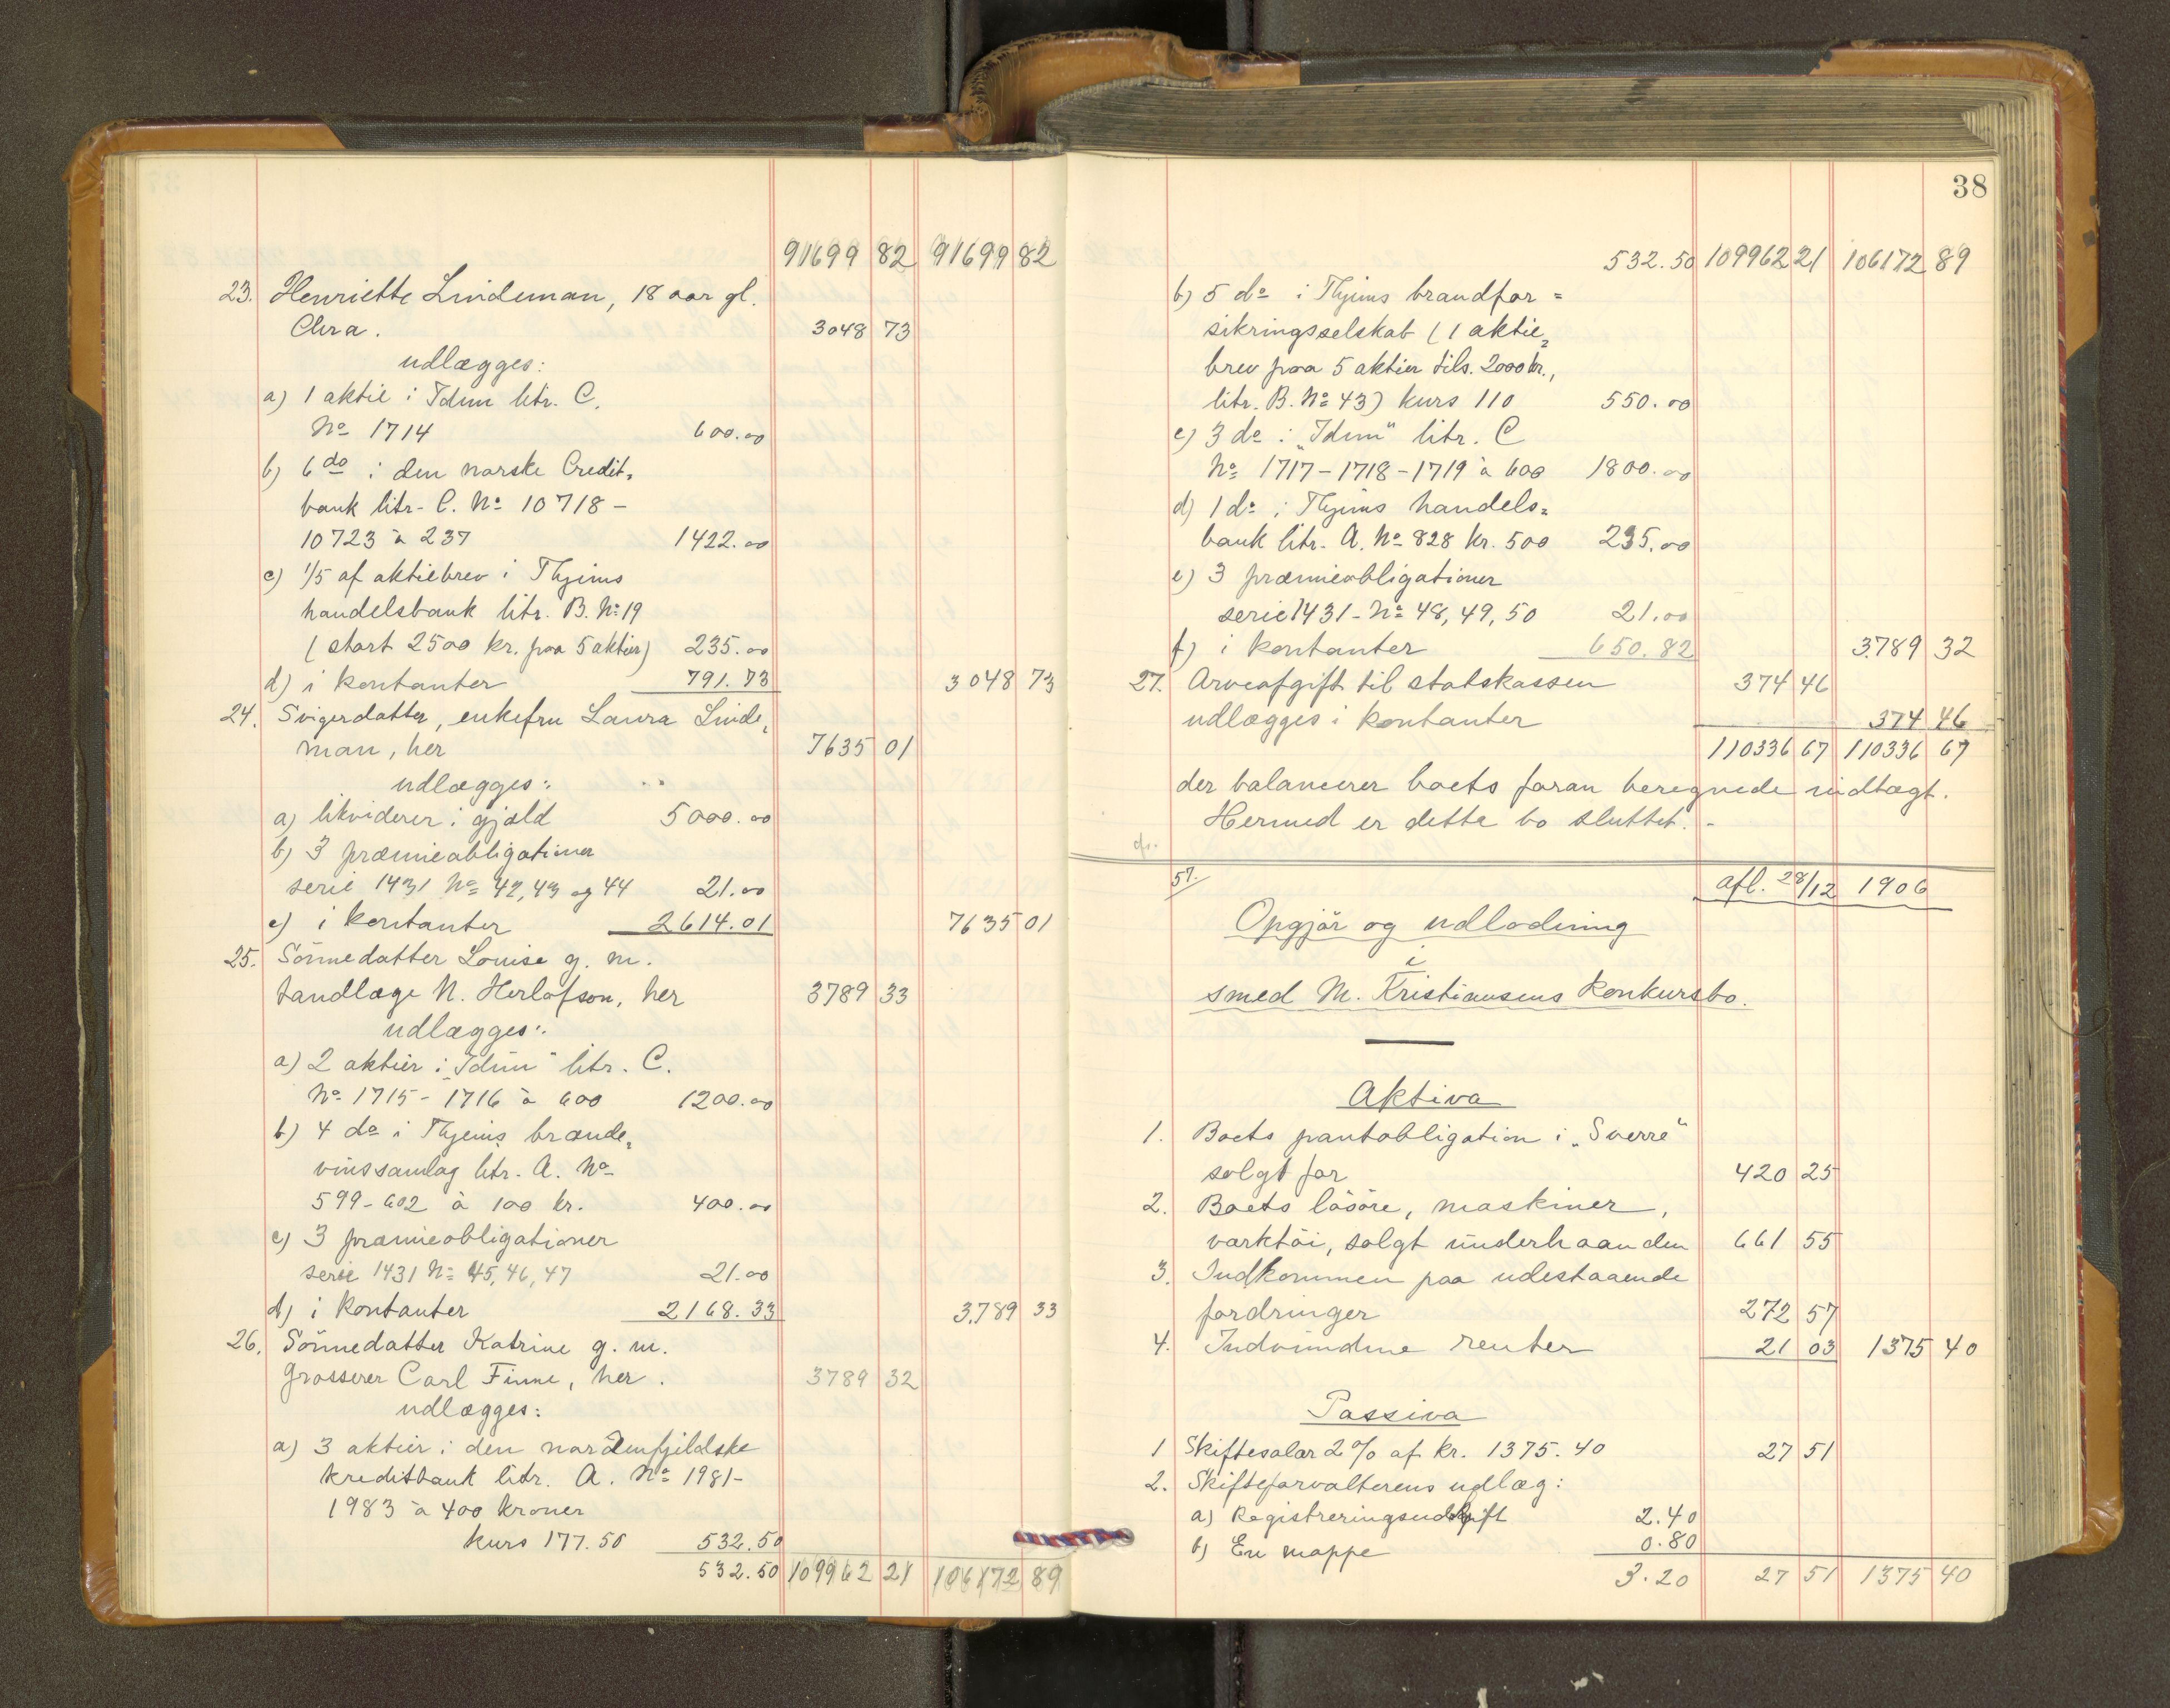 91699 82 91699 82
23. Henriette Lindeman, 18 aar gl.
Chra. 3048 73
udlægges:
a) 1 aktie i Idun litr. C.
No 1714 600.00
b) 6 do i den norske Credit=
bank litr. C. No 10718 –
10723 à 237 1422.00
c) 1/5 af aktiebrev i Thjems
handelsbank litr. B. No 19
(stort 2500 kr. paa 5 aktier) 235.00
d) i kontanter 791.73 3048 73
24. Svigerdatter, enkefru Laura Linde=
man, her 7635 01
udlægges:
a) likviderer i gjæld 5000.00
b) 3 præmieobligationer
serie 1431 No 42, 43 og 44 21.00
c) i kontanter 2614.01 7635 01
25. Sönnedatter Louise g. m.
tandlæge N. Herlofson, her 3789 33
udlægges:
a) 2 aktier i "Idun" litr. C.
No 1715 – 1716 à 600 1200.00
b) 4 do i Thjems brænde=
vinssamlag litr. A. No
599–602 à 100 kr. 400.00
c) 3 præmieobligationer
serie 1431 No 45, 46, 47 21.00
d) i kontanter 2168.33 3789 33
26. Sönnedatter Katrine g. m.
grosserer Carl Finne, her. 3789 32
udlægges:
a) 3 aktier i den nordenfjeldske
kreditbank litr. A. No 1981–
1983 à 400 kroner
kurs 177.50 532.50
532.50 109962 21 106172 89
38
532.50 109962 21 106172 89
b) 5 do i Thjems brandfor=
sikringsselskab (1 aktie=
brev paa 5 aktier tils. 2000 kr.,
litr. B. No 43) kurs 110 550.00
c) 3 do i "Idun" litr. C
No 1717 – 1718 – 1719 à 600 1800.00
d) 1 do i Thjems handels=
bank litr. A. No 828 kr. 500 235.00
e) 3 præmieobligationer
serie 1431 – No 48, 49, 50 21.00
f) i kontanter 650.82 3789 32
27. Arveafgift til statskassen 374 46
udlægges i kontanter 374 46
110336 67 110336 67
der balancerer boets foran beregnede indtægt.
Hermed er dette bo sluttet. –
57. afl. 28/12 1906
Opgjör og udlodning
i
smed M. Kristiansens konkursbo.
Aktiva
1. Boets pantobligation i "Sverre"
solgt for 420 25
2. Boets lösöre, maskiner,
værktöi, solgt underhaanden 661 55
3. Indkommen paa udestaaende
fordringer 272 57
4. Indvundne renter 21 03 1375 40
Passiva
1 Skiftesalær 2% af kr. 1375.40 27 51
2. Skifteforvalterens udlæg:
a) Registreringsudskrift 2.40
b) En mappe 0.80
3.20 27 51 1375 40